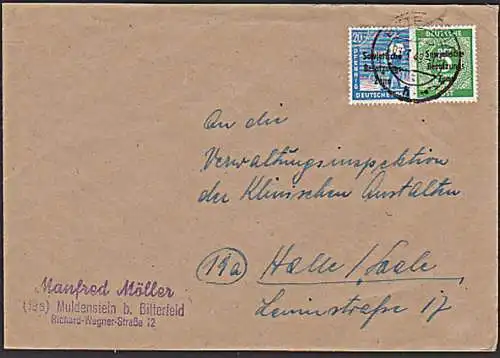 20
PFENNIG
DEUTSCHE
Sowjetische
Besatzungs
Zone
DEUTSCHE
Sowjetische
Besatzungs
POST
An die
Verwaltungsinspektion
der Klinischen Anstalten
(19a) Halle/Saale
Leninstraße 17
Manfred Möller
(19a) Muldenstein b. Bitterfeld
Richard-Wagner-Straße 12